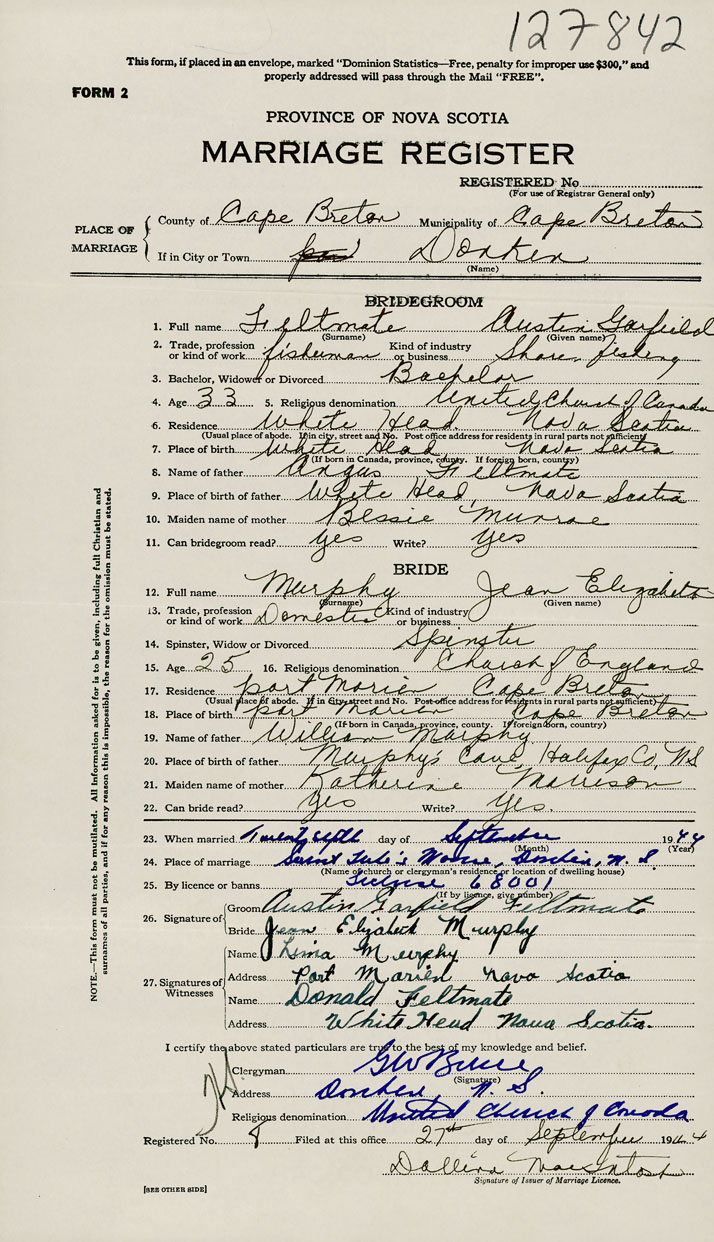 127842
This form, if placed in an envelope, marked "Dominion Statistics—Free, penalty for improper use $300," and
properly addressed will pass through the Mail "FREE".
FORM 2
PROVINCE OF NOVA SCOTIA
MARRIAGE REGISTER
REGISTERED No
(For use of Registrar General only)
PLACE OF MARRIAGE
County of Cape Breton Municipality of Cape Breton
If in City or Town Donkin
(Name)
BRIDEGROOM
1. Full name Feltmate Austin Garfield
(Surname) (Given name)
2. Trade, profession or kind of work fisherman Kind of industry or business Shore fishing
3. Bachelor, Widower or Divorced Bachelor
4. Age 33 5. Religious denomination United Church of Canada
6. Residence White Head, Nova Scotia
(Usual place of abode. If in city, street and No. Post office address for residents in rural parts not sufficient)
7. Place of birth White Head, Nova Scotia
(If born in Canada, province, county. If foreign born, country)
8. Name of father Angus Feltmate
9. Place of birth of father White Head, Nova Scotia
10. Maiden name of mother Bessie Munroe
11. Can bridegroom read? yes Write? yes
BRIDE
12. Full name Murphy Jean Elizabeth
(Surname) (Given name)
13. Trade, profession or kind of work Domestic Kind of industry or business
14. Spinster, Widow or Divorced Spinster
15. Age 25 16. Religious denomination Church of England
17. Residence port Morien Cape Breton
(Usual place of abode. If in city, street and No. Post office address for residents in rural parts not sufficient)
18. Place of birth port Morien Cape Breton
(If born in Canada, province, county. If foreign born, country)
19. Name of father William Murphy
20. Place of birth of father Murphy's Cove, Halifax Co, N.S
21. Maiden name of mother Katherine Morrison
22. Can bride read? yes Write? yes.
23. When married day of September 1944
(Month) (Year)
24. Place of marriage Saint Luke's Manse, Donkin, N. S.
(Name of church or clergyman's residence or location of dwelling house)
25. By licence or banns License 68001
(If by licence, give number)
26. Signature of
Groom Austin Garfield Feltmate
Bride Jean Elizabeth Murphy
27. Signatures of Witnesses
Name Murphy
Address Port Morien Nova Scotia
Name Donald Feltmate
Address White Head Nova Scotia.
I certify the above stated particulars are true to the best of my knowledge and belief.
Clergyman
(Signature)
Address Donkin, N. S.
Religious denomination United Church of Canada
Registered No. 8 Filed at this office 27th day of September 1944
MacIntosh
Signature of Issuer of Marriage Licence.
[SEE OTHER SIDE]
NOTE.—This form must not be mutilated. All information asked for is to be given, including full Christian and
surnames of all parties, and if for any reason this is impossible, the reason for the omission must be stated.